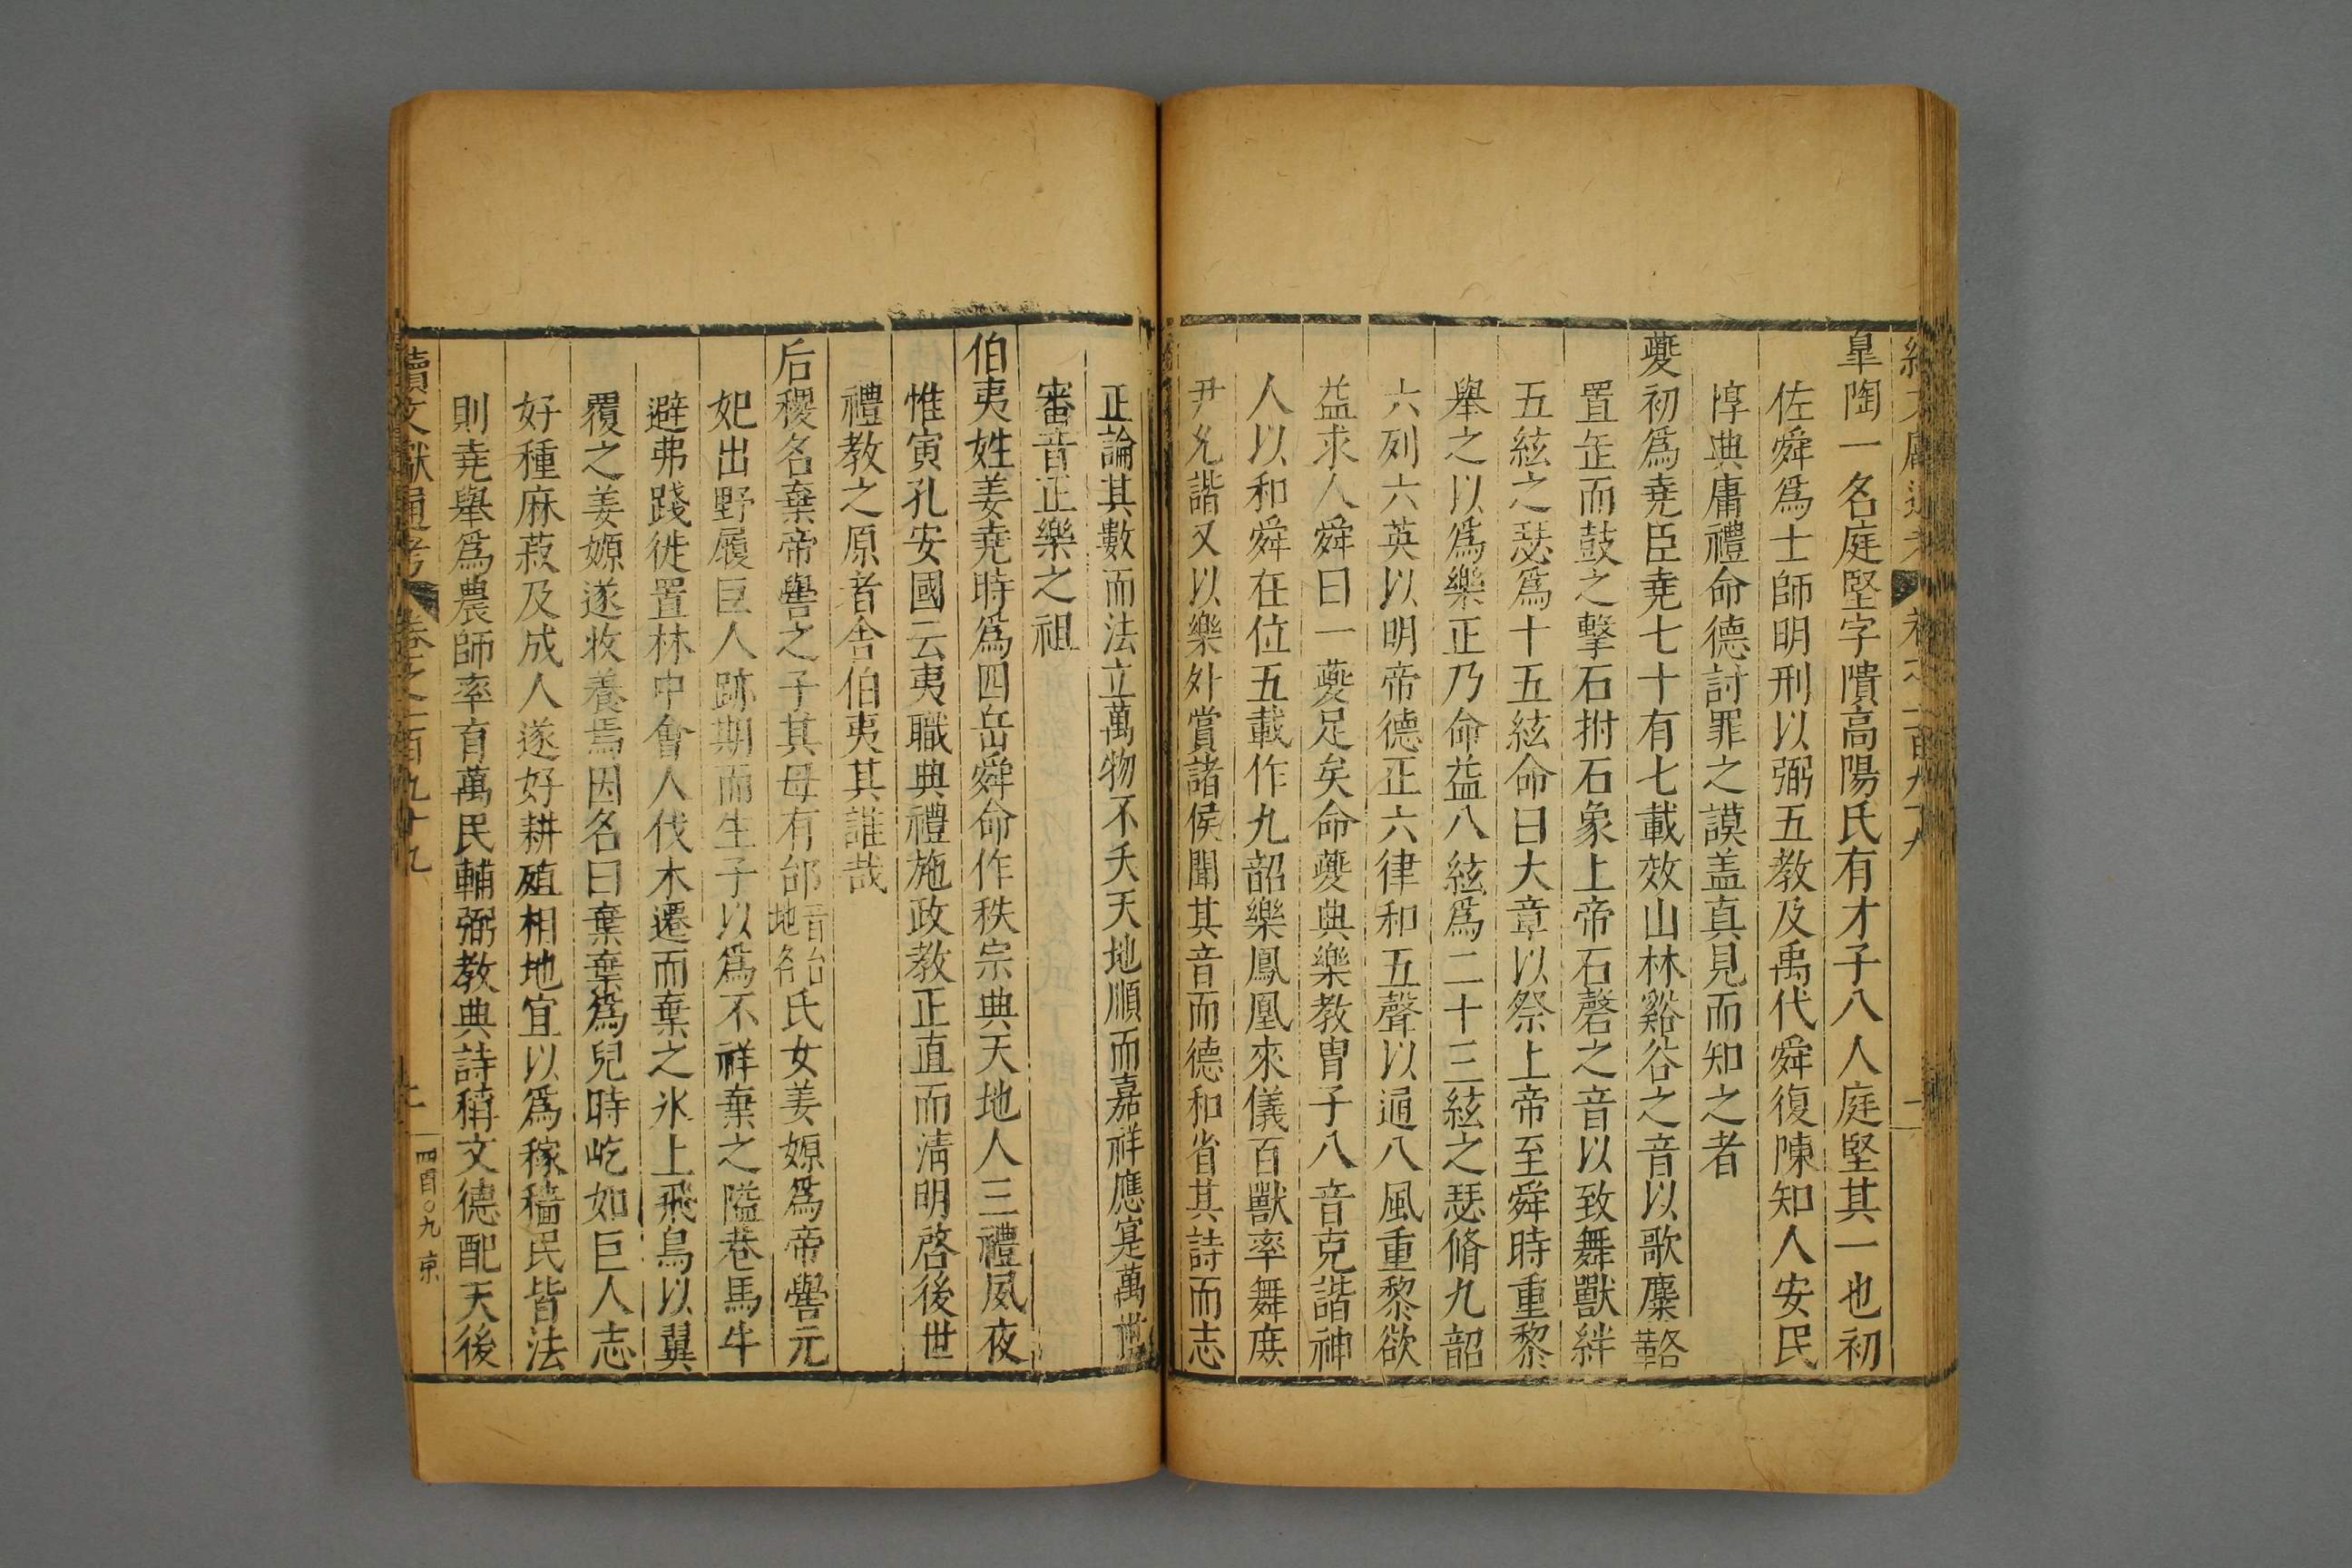 皐陶一名庭堅字隤高陽氏有才子八人庭堅其一也初
佐舜爲士師明刑以弼五教及禹代舜復陳知人安民
惇典庸禮命德討罪之謨盖真見而知之者
夔初爲堯臣堯七十有七載效山林谿谷之音以歌麋䩭
置缶而鼓之擊石拊石象上帝石磬之音以致舞獸絆
五絃之瑟爲十五絃命曰大章以祭上帝至舜時重黎
舉之以爲樂正乃命益八絃爲二十三絃之瑟脩九韶
六列六英以明帝德正六律和五聲以通八風重黎欲
益求人舜曰一夔足矣命夔典樂教胄子八音克諧神
人以和舜在位五載作九韶樂鳳凰來儀百獸率舞庶
尹允諧又以樂外賞諸侯聞其音而德和省其詩而志
正論其數而法立萬物不夭天地順而嘉祥應寔萬世
審音正樂之祖
伯夷姓姜堯時爲四岳舜命作秩宗典天地人三禮夙夜
惟寅孔安國云夷職典禮施政教正直而淸明啓後世
禮教之原者舍伯夷其誰哉
后稷名棄帝嚳之子其母有邰音台地名氏女姜嫄爲帝嚳元
妃出野履巨人跡期而生子以爲不祥棄之隘巷馬牛
避弗踐徙置林中會人伐木遷而棄之氷上飛鳥以翼
覆之姜嫄遂收養焉因名曰棄棄爲兒時屹如巨人志
好種麻菽及成人遂好耕殖相地宜以爲稼穡民皆法
則堯舉爲農師率育萬民輔弼教典詩稱文德配天後
續文獻通考 卷之二百九十九 二